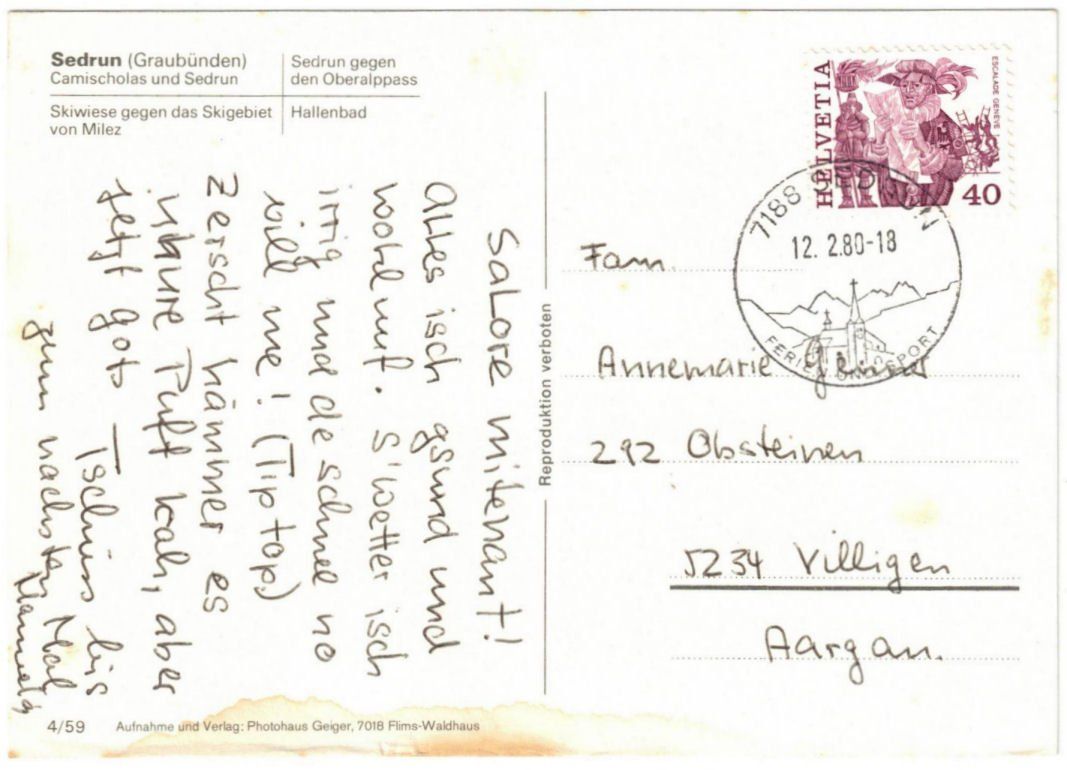 Sedrun (Graubünden)
Camischolas und Sedrun
Sedrun gegen
den Oberalppass
Skiwiese gegen das Skigebiet
von Milez
Hallenbad
Salore mitenant!
Alles isch gsund und
wohluf. S'wetter isch
irrig und de schnee no
vill me! (Tiptop)
Zerscht hämmer es
Puff kah, aber
jetzt gots Tschüss bis
zum nächsten Mal
Reproduktion verboten
HELVETIA
ESCALADE GENÈVE
40
7188 SEDRUN
12. 2.80-18
FERIEN UND SPORT
Fam.
Annemarie
292 Obsteinen
5234 Villigen
Aargau.
4/59
Aufnahme und Verlag: Photohaus Geiger, 7018 Flims-Waldhaus